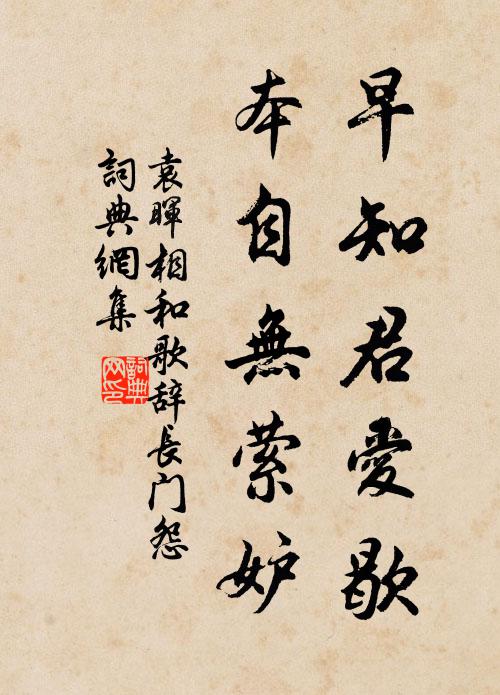 早知君愛歇
本自無縈妒
袁暉相和歌辞長门怨
詞典網集
詞典
网印